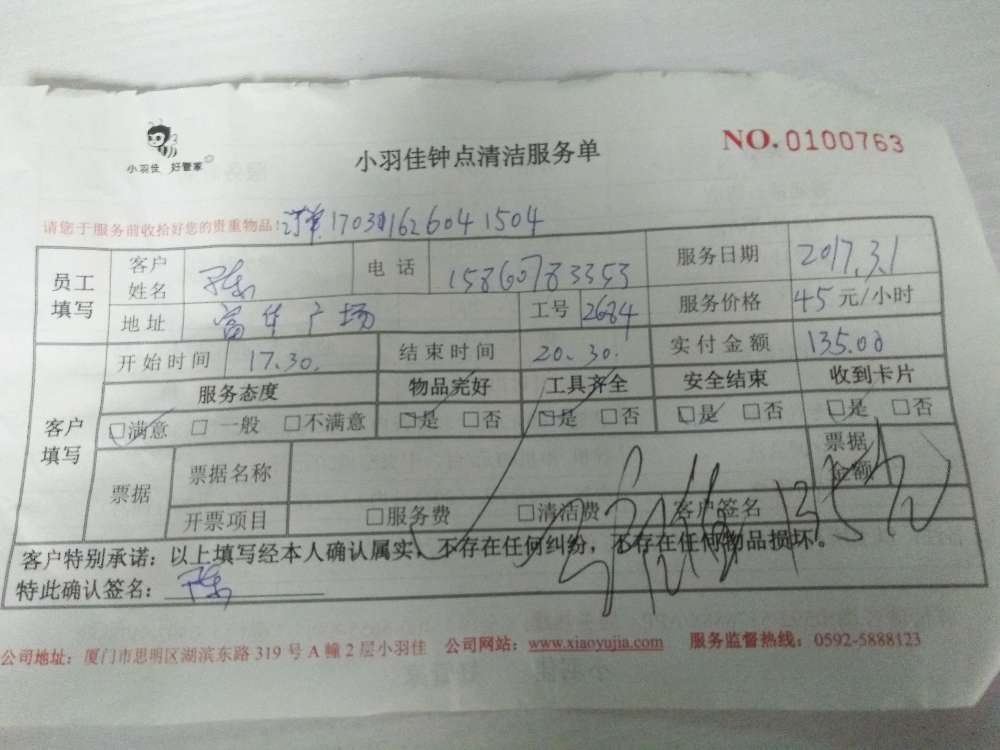 小羽佳 好管家
小羽佳钟点清洁服务单
NO.0100763
请您于服务前收拾好您的贵重物品!
员工填写 客户姓名 陈 电话 15860783353 服务日期 2017.3.1
地址 富华广场 工号 2684 服务价格 45元/小时
开始时间 17.30. 结束时间 20.30. 实付金额 135.00
客户填写 服务态度 物品完好 工具齐全 安全结束 收到卡片
□满意 □一般 □不满意 □是 □否 □是 □否 □是 □否 □是 □否
票据 票据名称 票据金额
开票项目 □服务费 □清洁费 客户签名
客户特别承诺:以上填写经本人确认属实,不存在任何纠纷,不存在任何物品损坏。
特此确认签名: 陈
公司地址:厦门市思明区湖滨东路319号A幢2层小羽佳 公司网站:www.xiaoyujia.com 服务监督热线:0592-5888123